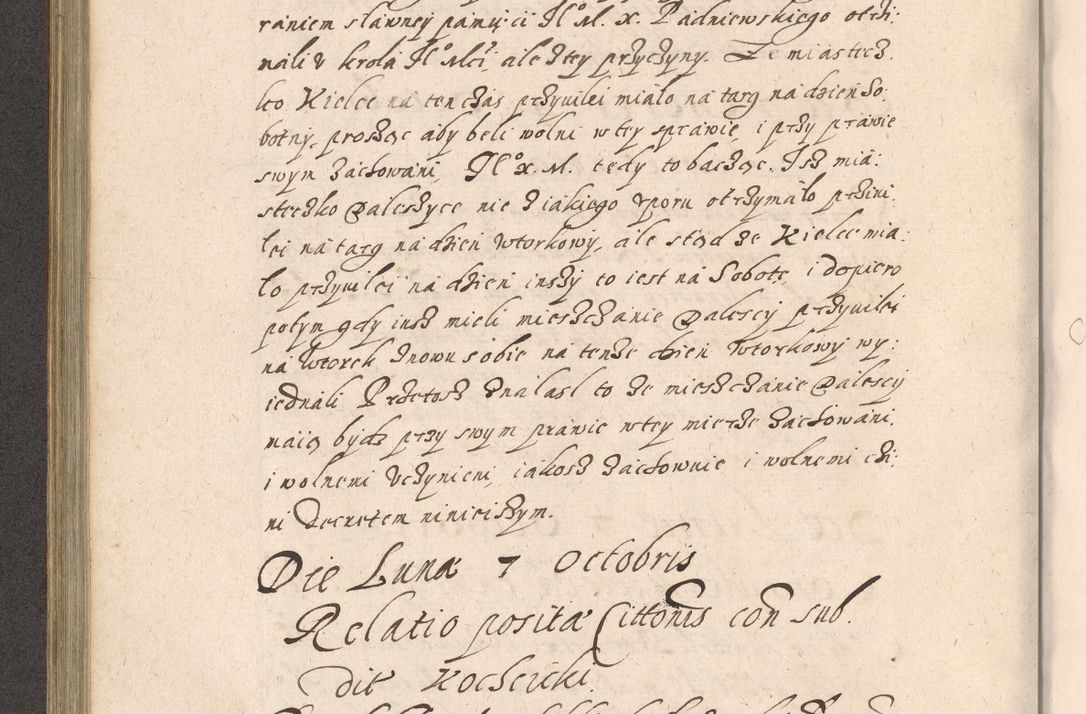 raniem sławney pamięci Jłº M. x. Padniewskiego otrzi:
mali v krola Jłº Mci, ale z tey przyczyny. Ze miastecz
ko Kielce na ten czas przyuilei miało na targ na dzień So:
botny, prosząc aby beli wolni w tey sprawie, i przy prawie
swym zachowani, Jłº x. M. tedy to bacząc. Jsz mia:
steczko Daleszyce nie z iakiego vporu otrzymało przivi:
lei na targ na dzień Wtorkowy, ale stąd ze Kielce mia:
ło przyuilei na dzień inszy to iest na Sobotę i dopiero
potym gdy insz mieli mieszczanie Dalescy przyuilei
na Wtorek znowu sobie na tenze dzień Wtorkowy wy:
iednali Przetosz znalasł to ze mieszczanie Dalescy
maią bydz przy swym prawie w tey mierze zachowani.
i wolnemi Vczynieni, iakosz zachownie i wolnemi czi:
ni Decretem ninieiszym.
Die Lunæ 7 Octobris
Relatio positæ Cittonis con sub.
dit Kochcicki.